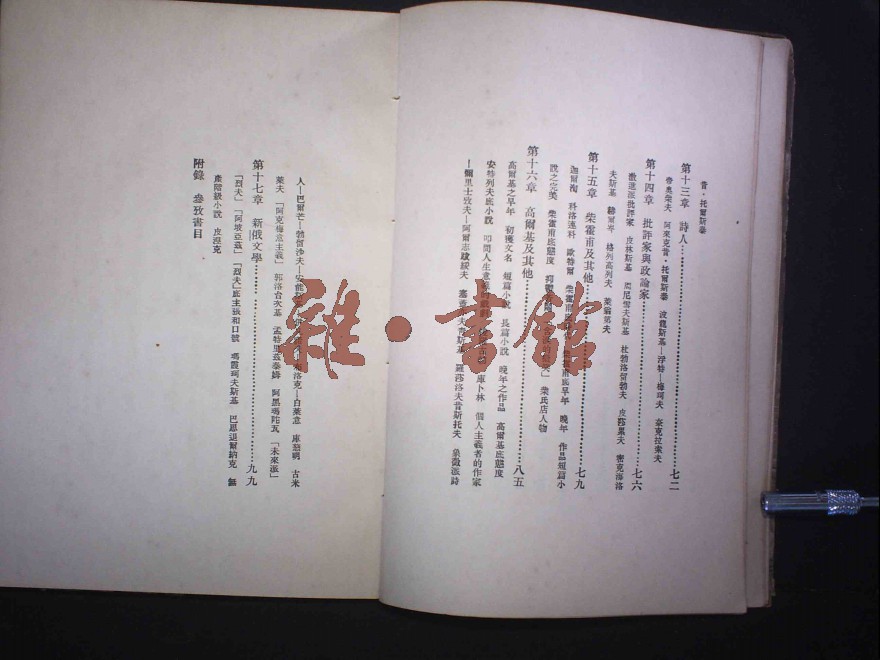 昔·托爾斯泰
第十三章 詩人……七二
帝奥柴夫 阿來克昔·托爾斯泰 波龍斯基—浮特—梅珂夫 奈克拉索夫
第十四章 批評家與政論家……七六
激進派批評家 皮林斯基 周尼雪夫斯基 杜勃洛留勃夫 皮莎里夫 密克海洛
夫斯基 赫爾岑 格列高列夫
第十五章 柴霍甫及其他……七九
迦爾洵 科洛連科 歐特爾 柴霍甫底早年 晚年 作品短篇小
說之完美 柴霍甫底態度 柴氏店人物
第十六章 高爾基及其他……八五
高爾基之早年 初獲文名 短篇小說 長篇小說 晚年之作品 高爾基底態度
安特列夫底小說 叩問人生意義的戲劇 庫卜林 個人主義者的作家
—彌里士攷夫—阿爾志跋綏夫 塞 羅莎洛夫 昔斯托夫 象徵派詩
人—巴爾芒—勃留沙夫— 布洛克—白萊意 庫慈明 古米
萊夫 「阿克梅意主義」 郭洛台次基 孟特里茲泰姆 阿黑瑪陀瓦 「未來派」
第十七章 新俄文學……九九
「烈夫」「阿坡亞茲」「烈夫」底主張和口號 瑪霞珂夫斯基 巴思退爾納克 無
產階級小說 皮涅克
附錄 參攷書目
雜·書館